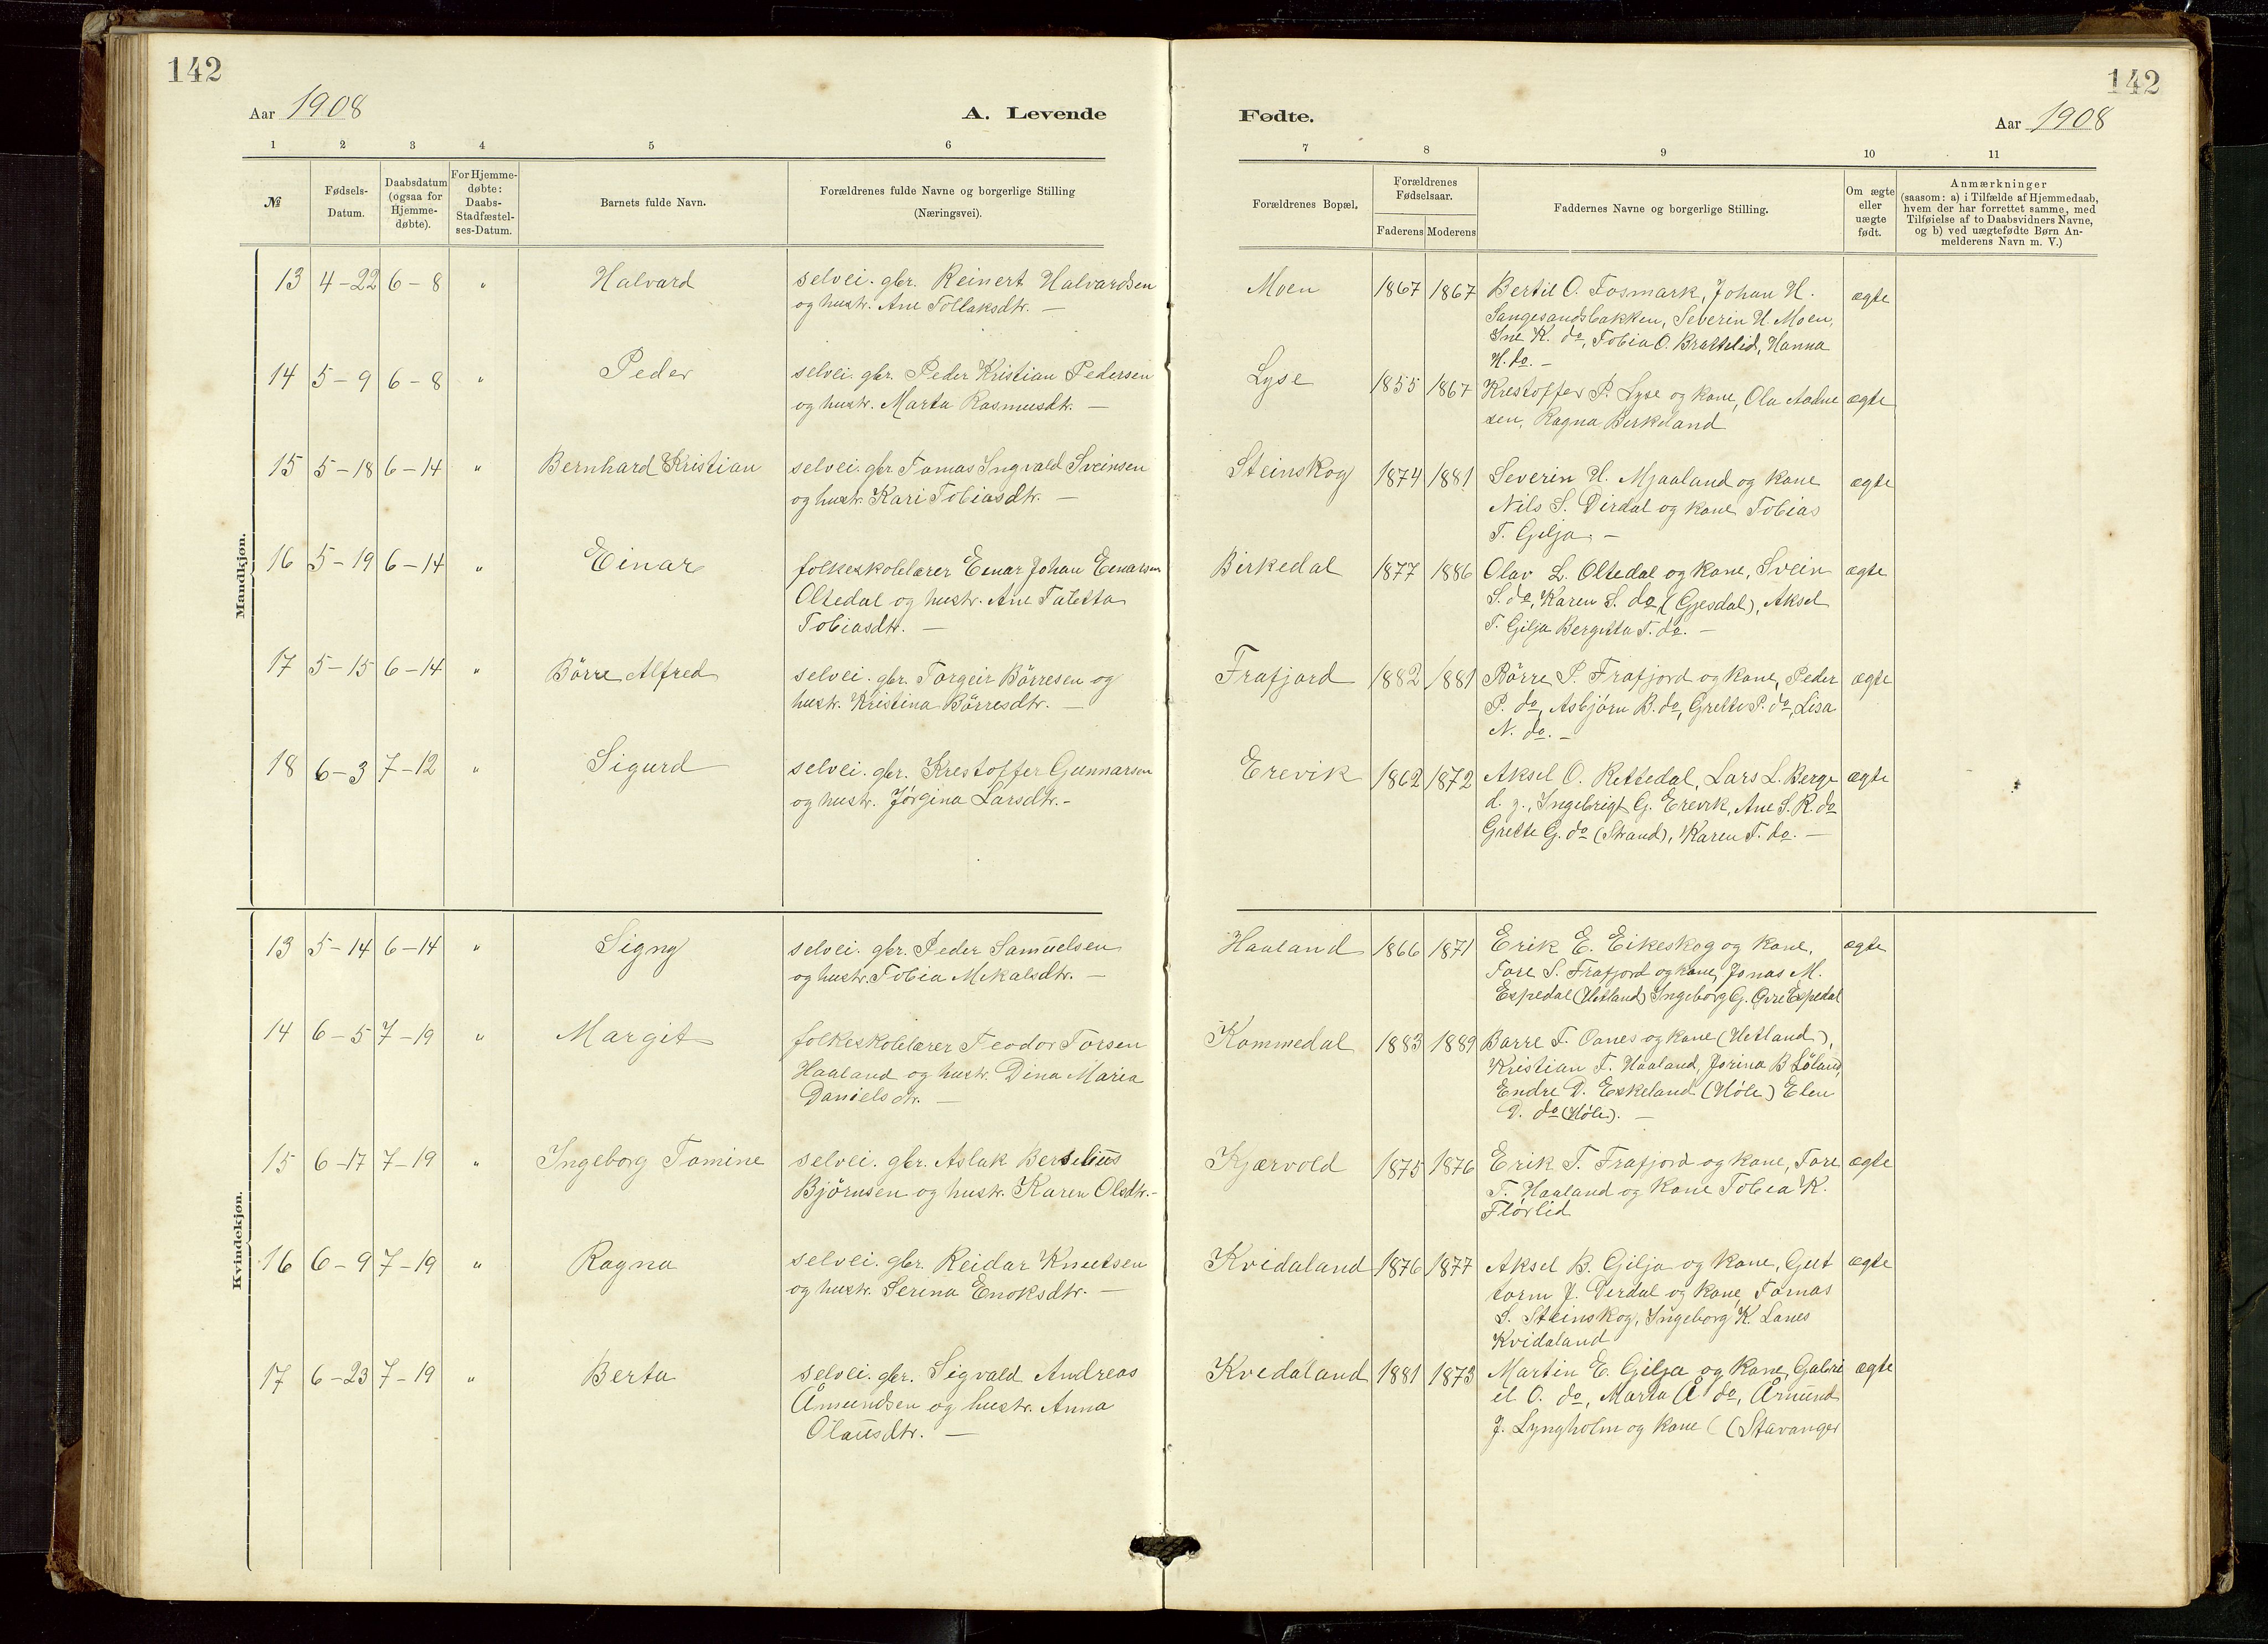 142
142
Aar 1908
A. Levende
Fødte.
Aar 1908
1 2 3 4 5 6 7 8 9 10 11
№
Fødsels-
Datum.
Daabsdatum
(ogsaa for
Hjemme-
døbte).
For Hjemme-
døbte:
Daabs-
Stadfæstel-
ses-Datum.
Barnets fulde Navn.
Forældrenes fulde Navne og borgerlige Stilling
(Næringsvei).
Forældrenes Bopæl.
Forældrenes
Fødselsaar.
Faderens Moderens
Faddernes Navne og borgerlige Stilling.
Om ægte
eller
uægte
født.
Anmærkninger
(saasom: a) i Tilfælde af Hjemmedaab,
hvem der har forrettet samme, med
Tilføielse af to Daabsvidners Navne,
og b) ved uægtefødte Børn An-
melderens Navn m. V.)
Mandkjøn.
13 4-22 6-8 " Halvard
selvei. gbr. Reinert Halvardsen
og hustr. Ane Tollaksdtr. —
Moen 1867 1867
Bertil O. Fosmark, Johan H.
Sangesandsbakken, Severin H. Moen,
Ine K. do, Tobia O. Brattelid, Hanna
H. do. -
ægte
14 5-9 6-8 " Peder
selvei. gbr. Peder Kristian Pedersen
og hustr. Marta Rasmusdtr. —
Lyse 1855 1867
Krestoffer P. Lyse og kone, Ola Aadne
sen, Ragna Birkeland
ægte
15 5-18 6-14 " Bernhard Kristian
selvei. gbr Tomas Ingvald Sveinsen
og hustr. Kari Tobiasdtr. —
Steinskog 1874 1881
Severin H. Mjaaland og kone
Nils S. Dirdal og kone Tobias
T. Gilja. -
ægte
16 5-19 6-14 " Einar
folkeskolelærer Einar Johan Einarsen
Oltedal og hustr. Ane Taletta
Tobiasdtr. —
Birkedal 1877 1886
Olav L. Oltedal og kone, Svein
S. do, Karen S. do (Gjesdal), Aksel
T. Gilja Bergitta T. do. —
ægte
17 5-15 6-14 " Börre Alfred
selvei. gbr. Torgeir Börresen og
hustr. Kristina Börresdtr. —
Frafjord 1882 1881
Börre P. Frafjord og kone, Peder
P. do, Asbjörn B. do, Grette P. do, Lisa
N. do. -
ægte
18 6-3 7-12 " Sigurd
selvei. gbr. Krestoffer Gunnarsen
og hustr. Jörgina Larsdtr.-
Erevik 1862 1872
Aksel O. Rettedal, Lars L. Berge
d. y., Ingebrigt G. Erevik, Ane S. R. do
Grette G. do (Strand), Karen T. do. —
ægte
Kvindekjøn.
13 5-14 6-14 " Signy
selvei. gbr. Peder Samuelsen
og hustr. Tobia Mikalsdtr. —
Haaland 1866 1871
Erik E. Eikeskog og kone,
Tore S. Frafjord og kone, Jonas M.
Espedal (Hetland) Ingeborg G. Øvre Espedal
ægte
14 6-5 7-19 " Margit
folkeskolelærer Teodor Torsen
Haaland og hustr. Dina Maria
Danielsdtr. —
Kommedal 1883 1889
Barre T. Oanes og kone (Hetland),
Kristian T. Haaland, Jorina B Löland,
Endre D. Eskeland (Höle) Elen
D. do (Höle). —
15 6-17 7-19 " Ingeborg Tomine
selvei. gbr. Aslak Berselius
Björnsen og hustr. Karen Olsdtr.-
Kjærvold 1875 1876
Erik T. Frafjord og kone, Tore
T. Haaland og kone Tobia K.
Flörlid
ægte
16 6-9 7-19 " Ragna
selvei. gbr. Reidar Knutsen
og hustr. Serina Enoksdtr. —
Kvidaland 1876 1877
Aksel B. Gilja og kone, Gut
torm J. Dirdal og kone, Tomas
S. Steinskog, Ingeborg K. Lanes
Kvidaland
ægte
17 6-23 7-19 " Berta
selvei. gbr. Sigvald Andreas
Åmundsen og hustr. Anna
Olausdtr. —
Kvidaland 1881 1873
Martin E. Gilja og kone, Gabri
el O. do, Marta Å. do, Åmund
J. Lyngholm og kone ( (Stavanger
ægte